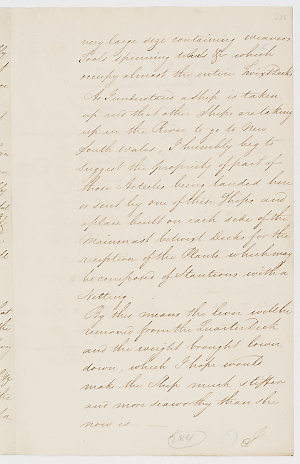 very large size containing Weavers
Tools spinning wheels &c which
occupy almost the entire Twixt Decks
As I understand a Ship is taken
up and that other Ships are taking
up in the River to go to New
South Wales, I humbly beg to
suggest the propriety of part of
those Articles being landed here
or sent by one of those Ships and
a place built on each side of the
Mainmast betwixt Decks for the
reception of the Plants which may
be composed of Stantions with a
Netting.
By this means the lever will be
removed from the Quarter Deck
and the weight brought lower
down, which I hope would
make the Ship much stiffer
and more seaworthy than she
now is.